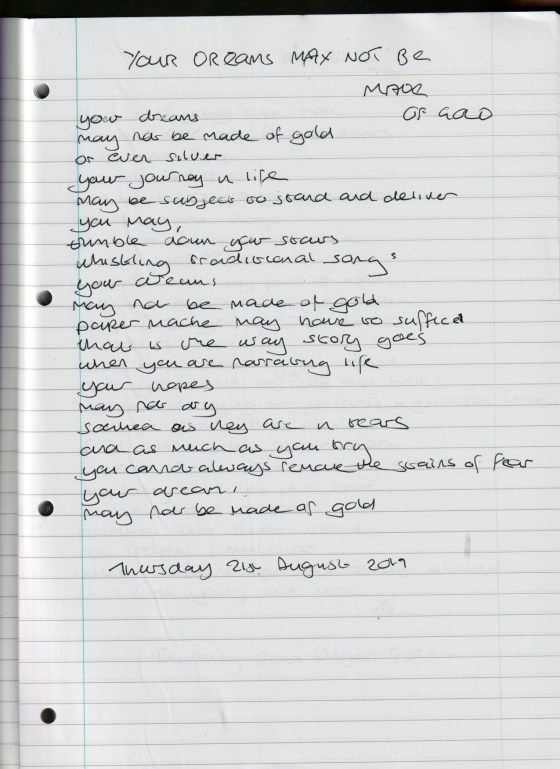 YOUR DREAMS MAY NOT BE
MADE
OF GOLD
your dreams
may not be made of gold
or even silver
your journey n life
may be subject to stand and deliver
you may,
tumble down your stairs
whistling traditional songs
your dreams
may not be made of gold
paper mache may have to suffice
that is the way story goes
when you are narrating life
your hopes
may not dry
soaked as they are n tears
and as much as you try
you cannot always remove the stains of fear
your dreams
may not be made of gold
Thursday 21st August 2019